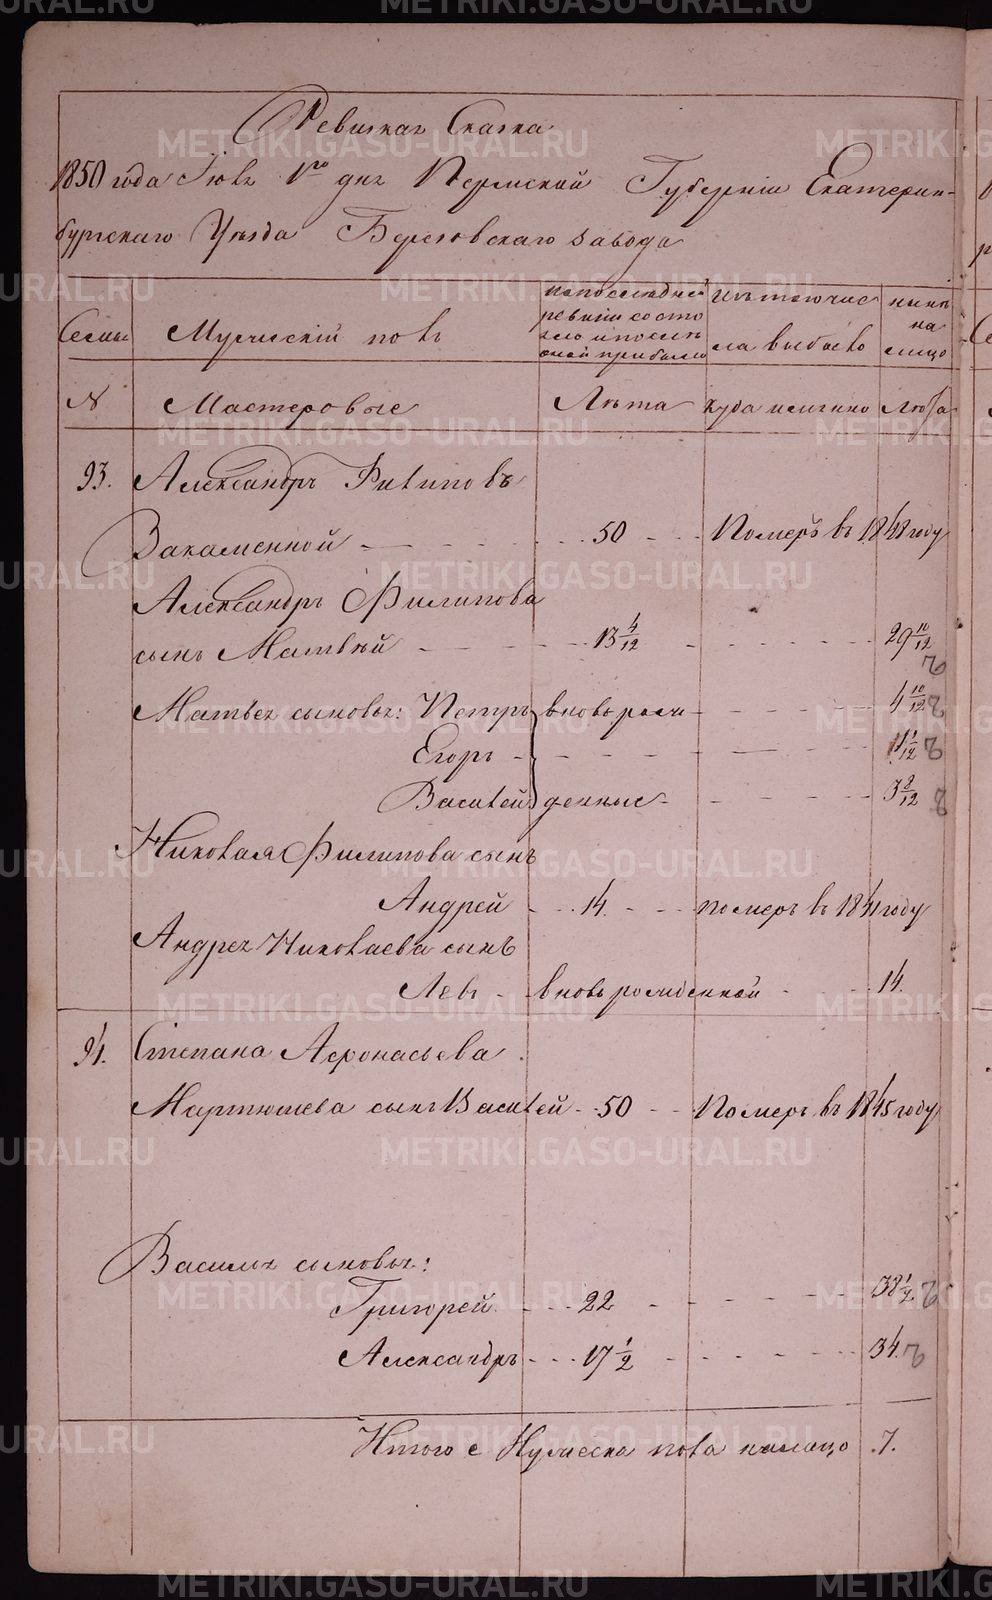 Ревизкая Сказка
1850 года Июня 1го дня Пермской Губернiи Екатерин-
бургскаго Уезда Березовскаго завода
Семьи
Мужескiй полъ
попоследней
ревизiи состо
яло ипосле
оной прибыло
изътогочис
ла выбыло
ныне
на
лицо
N
Мастеровые
Лета
куда имянно
Лета
93. Александръ Филиповъ
Закаменной 50 Померъ въ 1848 году
Александръ Филипова
сынъ Матвей 13 4/12 29 10/12
Матвея сыновья: Петръ вновь рож 4 10/12
Егоръ 1 1/12
Василей денные 3 8/12
Николая Филипова сынъ
Андрей 14. померъ въ 1841 году
Андрея Николаева сынъ
Левъ вновь рожденной 14.
94. Степана Афонасьева
Мартюшева сынъ Василей 50 Померъ въ 1845 году
Василья сыновья:
Григорей 22 38 1/2
Александръ 17 1/2 34.
Итого Мужеска пола налицо 7.
METRIKI.GASO-URAL.RU